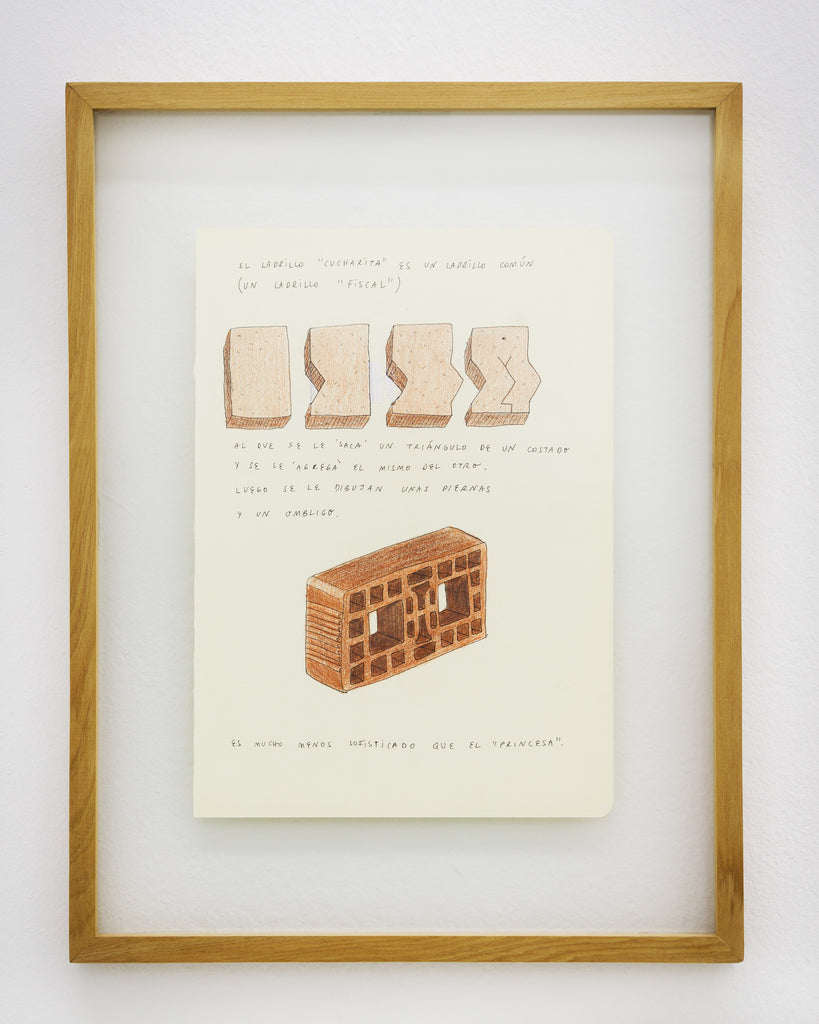 EL LADRILLO "CUCHARITA" ES UN LADRILLO COMÚN
(UN LADRILLO "FISCAL")
AL QUE SE LE 'SACA' UN TRIÁNGULO DE UN COSTADO
Y SE LE 'AGREGA' EL MISMO DEL OTRO.
LUEGO SE LE DIBUJAN UNAS PIERNAS
Y UN OMBLIGO.
ES MUCHO MENOS SOFISTICADO QUE EL "PRINCESA".